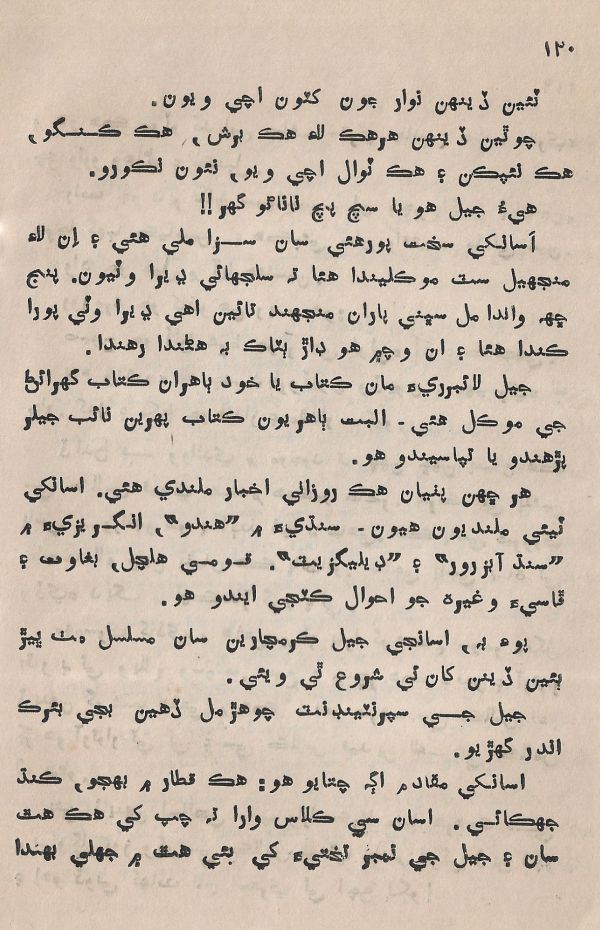 ١٢٠
ٽئين ڏينهن نوار جون کٽون اچي ويون.
چوٿين ڏينهن هرهڪ لاءِ هڪ برش, هڪ ڪنگو,
هڪ نئپڪن ۽ هڪ ٽوال اچي ويو, نئون نڪورو.
هيءُ جيل هو يا سچ پچ ناناڻو گهر!!
اسانکي سخت پورهئي سان سزا ملي هئي ۽ اِن لاءِ
منجهيل سٽ موڪليندا هئا تہ سلجهائي ڍيرا وٺيون. پنج
ڇهہ واندا مل سڀني پاران منجهند تائين اهي ڍيرا وٽي پورا
ڪندا هئا ۽ ان وچ ۾ هو ڊاڙ بٽاڪ بہ هڻندا رهندا.
جيل لائبرريءَ مان ڪتاب يا خود ٻاهران ڪتاب گهرائڻ
جي موڪل هئي - البت ٻاهريون ڪتاب پهرين نائب جيلر
پڙهندو يا تپاسيندو هو.
هر ڇهن ڀنيان هڪ روزاني اخبار ملندي هئي. اسانکي
ٽيئي ملنديون هيون - سنڌيءَ ۾ ”هندو“, انگريزيءَ ۾
”سنڌ آبزرور“ ۽ ”ڊيليگزيٽ“. قومي هلچل, بغاوت ۽
ڦاسيءَ وغيره جو احوال ڪٽجي ايندو هو.
پوءِ بہ, اسانجي جيل ڪرمچارين سان مسلسل مٺ ڀيڙ
ٻئين ڏينن کان ئي شروع ٿي ويئي.
جيل جي سپرنٽينڊنٽ چوهڙمل ڏهين بجي بئرڪ
اندر گهڙيو.
اسانکي مقادم اڳہ چتايو هو: هڪ قطار ۾ بهجو, ڪنڌ
جهڪائي. اسان سي ڪلاس وارا تہ چپ کي هڪ هٿ
سان ۽ جيل جي نمبر تختيءَ کي ٻئي هٿ ۾ جهلي بهندا